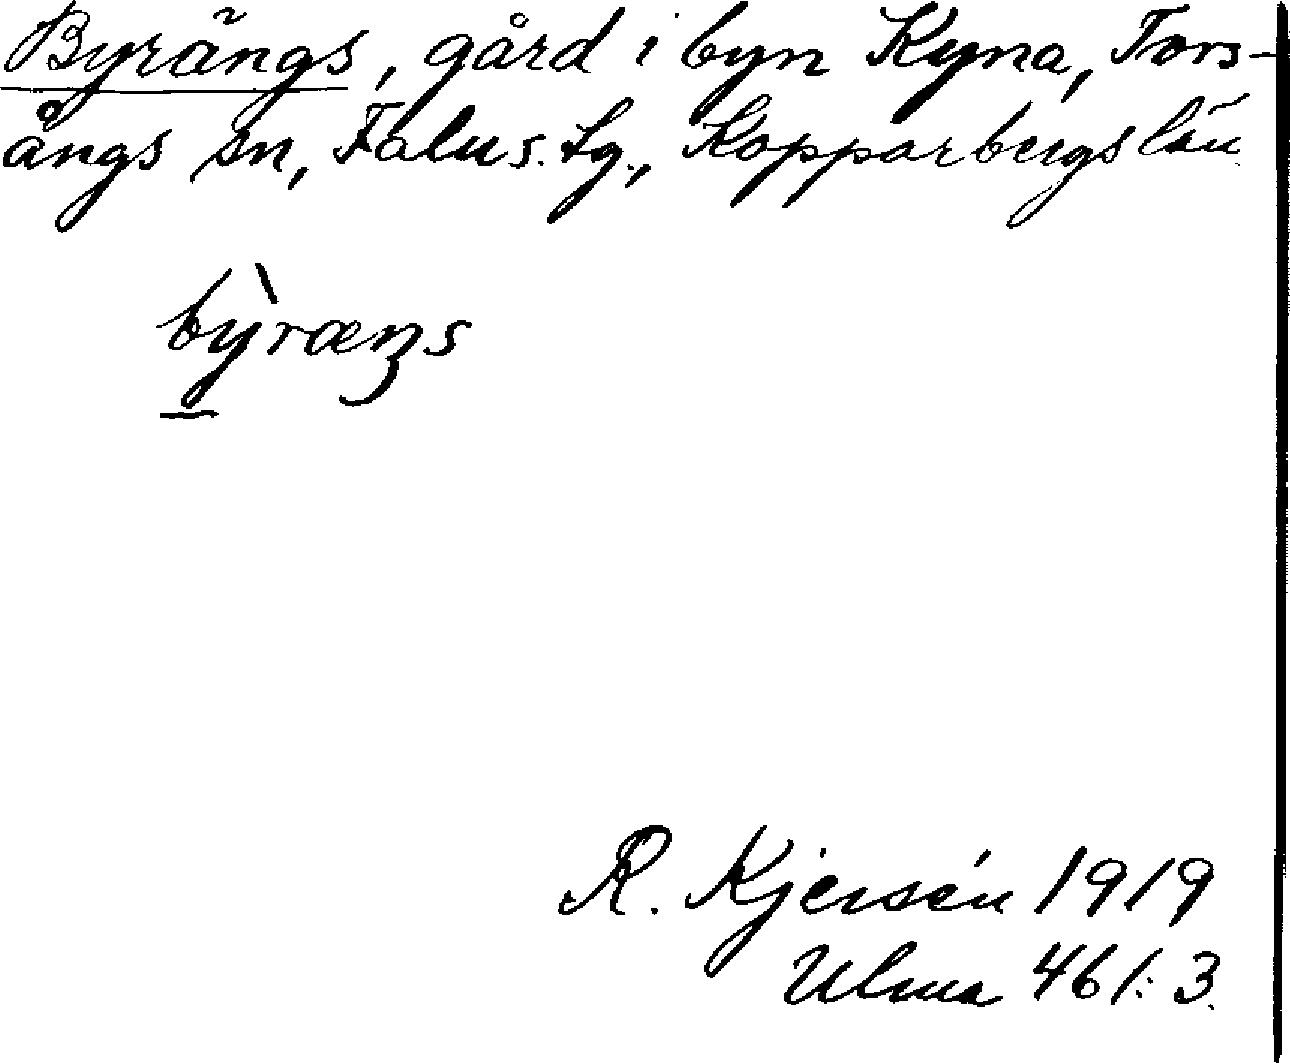 Byrängs, gård i byn Kyna, Tors-
ångs sn, Falu s. tg., Kopparbergs län
by̍ræŋs
R. Kjersén 1919
Ulma 461:3